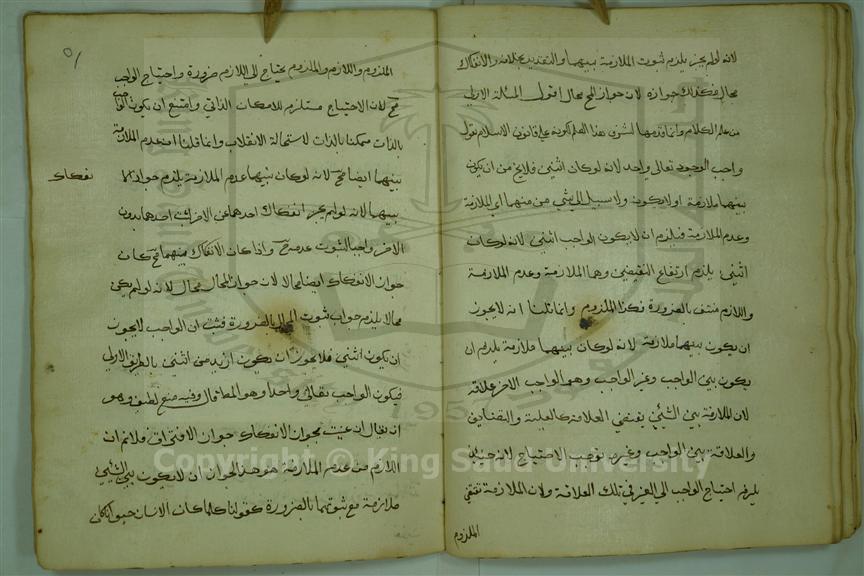 لانه لو لم يجز يلزم ثبوت الملازمة بينهما والتقدير بخلافه والانفكاك
محال فكذلك جوازه لان جواز المح محال اقول المسئلة الاولى
من علم الكلام وانما قدمها لشرف هذا العلم لكونه على قانون الاسلام نقول
واجب الوجود تعالى واحد لانه لو كان اثنين فلا يخ من ان يكون
بينهما ملازمة او لا يكون ولا سبيل الى شئ من منهما اى الملازمة
وعدم الملازمة فيلزم ان لا يكون الواجب اثنين لانه لو كان
اثنين يلزم ارتفاع النقيضين وهما الملازمة وعدم الملازمة
واللازم منتف بالضرورة فكذا الملزوم وانما قلنا انه لا يجوز
ان يكون بينهما ملازمة لانه لو كان بينهما ملازمة يلزم ان
يكون بين الواجب وغير الواجب وهو الواجب الاخر علاقة
لان الملازمة بين الشئين تقتضى العلاقة كالعلية والتضايف
والعلاقة بين الواجب وغيره توجب الاحتياج لانه حينئذ
يلزم احتياج الواجب الى الغير فى تلك العلاقة ولان الملازمة تقتضى
الملزوم
٥١
الملزوم واللازم والملزوم يحتاج الى اللازم ضرورة واحتياج الواجب
مح لان الاحتياج مستلزم للامكان الذاتى وامتنع ان يكون الواجب
بالذات ممكنا بالذات لاستحالة الانقلاب وانما قلنا ان عدم الملازمة
بينهما ايضا مح لانه لو كان بينهما عدم الملازمة يلزم جواز الانفكاك
بينهما لانه لو لم يجز انفكاك احدهما عن الاخر احدهما بدون
الاخر واجب الثبوت عدمه واذا كان الانفكاك بينهما مح كان
جواز الانفكاك ايضا محالا لان جواز المحال محال لانه لو لم يكن
محالا يلزم جواز ثبوت المحال بالضرورة فثبت ان الواجب لا يجوز
ان يكون اثنين فلا يجوز ان يكون ازيد من اثنين بالطريق الاولى
فيكون الواجب تعالى واحدا وهو المط قال وفيه منع لطيف وهو
ان يقال ان عنيت بجواز الانفكاك جواز الافتراق فلا نم ان
اللازم من عدم الملازمة هو هذا الجواز ان لا يكون بين الشيئين
ملازمة مع ثبوتهما بالضرورة كقولنا كلما كان الانسان حيوانا كان
Copyright © King Saud University
1957